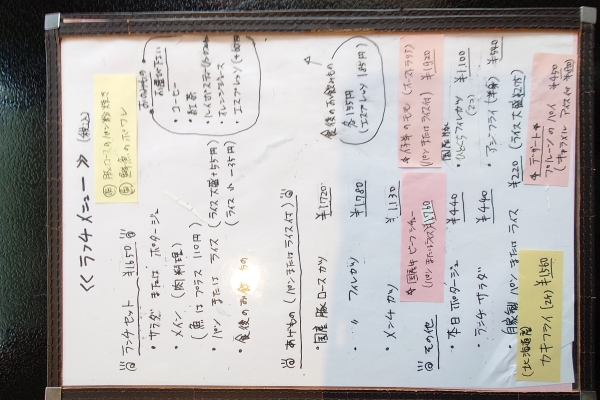 <<ランチメニュー>> (税込)
ランチセット ¥1650
・サラダ または ポタージュ
・メイン (肉料理)
(魚はプラス 110円)
・パン または ライス (ライス大盛+55円)
(ライス小 -35円)
・食後のお飲もの
豚ロースのパン粉焼き
鮮魚のポワレ
お飲みもの
お選び下さい
・コーヒー
・紅茶
・オレンジジュース
・エスプレッソ(+60円)
あげもの (パンまたはライス付)
・国産豚ロースカツ ¥1,720
・〃 フィレカツ ¥1,780
・メンチカツ ¥1,130
食後のお飲みもの
各155円
(エスプレッソ 185円)
国産牛ビーフシチュー
(パンまたはライス付) ¥1760
仔羊のもも (オーストラリア)
(パンまたはライス付) ¥1,920
その他
・本日ポタージュ ¥440
・ランチサラダ ¥440
・自家製パンまたはライス ¥220 (ライス大盛¥275)
国産豚
・ひとくちフィレカツ (2コ) ¥1,100
・アジフライ (半身) ¥540
デザート
プルーンのパイ ¥450
(キャラメルアイス付
(北海道産)
カキフライ (2ケ) ¥1,560